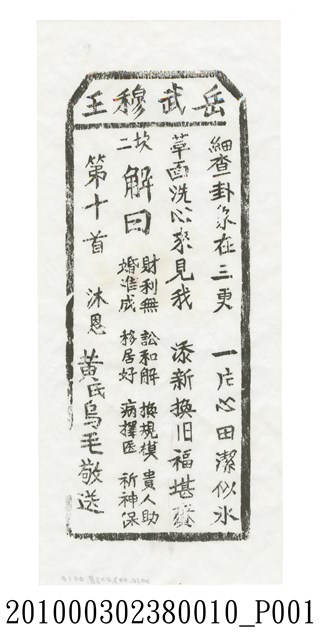 岳武穆王
細查一卦象在三更 一片心田潔似氷
革面洗心來見我 添新換旧福堪發
坎二
解曰
財利無 訟和解 換規模 貴人助
婚准成 移居好 病擇医 祈神保
第十首 沐恩 黃氏烏毛敬送
201000302380010_P001